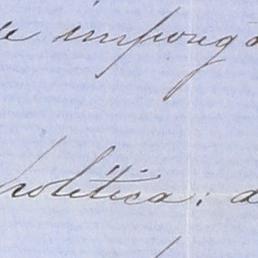 imponga
política: a